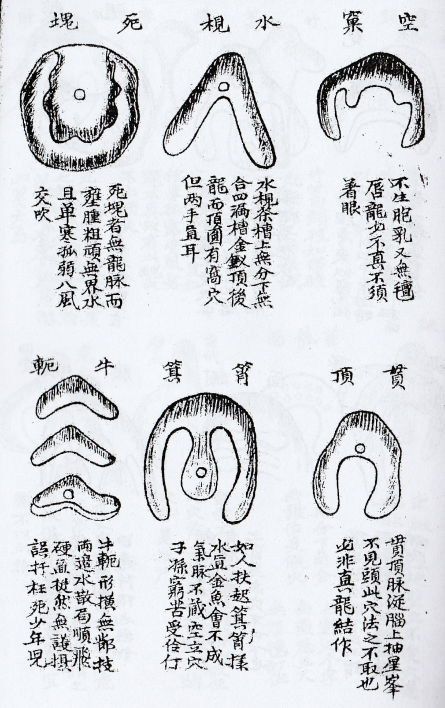 空窠
不生胞乳又無氊
唇龍必不真不須
著眼
水梘
水梘茶槽上無分下無
合四漏槽金釵頂後
龍而頂圓有窩穴
但两手直耳
死塊
死塊者無龍脉而
癰腫粗頑無界水
且单寒孤弱八風
交吹
貫頂
貫頂脉從腦上抽星峯
不見頭此穴法之不取也
必非真龍結作
筲箕
如人扶起箕筲樣
水直金魚會不成
氣脉不藏空立穴
子孫窮苦受伶仃
牛軛
牛軛形横無鄰枝
两邊水散局順飛
硬直挺寒無護揖
誤扦枉死少年児